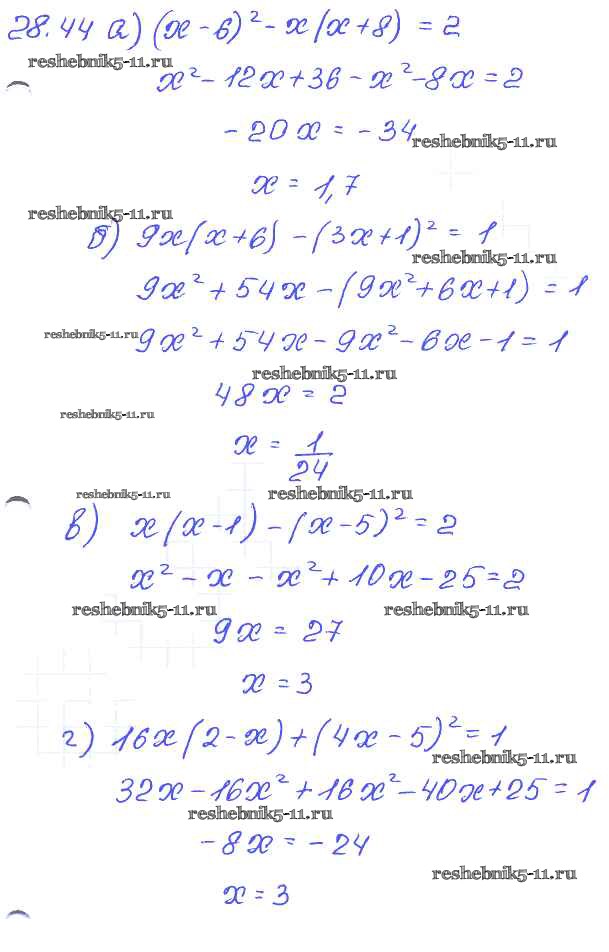 28.44 а) (x-6)² - x(x+8) = 2
reshebnik5-11.ru
x² - 12x + 36 - x² - 8x = 2
- 20x = - 34
reshebnik5-11.ru
x = 1,7
reshebnik5-11.ru
б) 9x(x+6) - (3x+1)² = 1
reshebnik5-11.ru
9x² + 54x - (9x² + 6x + 1) = 1
reshebnik5-11.ru
9x² + 54x - 9x² - 6x - 1 = 1
reshebnik5-11.ru
48x = 2
reshebnik5-11.ru
x = 1/24
reshebnik5-11.ru reshebnik5-11.ru
в) x(x-1) - (x-5)² = 2
x² - x - x² + 10x - 25 = 2
reshebnik5-11.ru reshebnik5-11.ru
9x = 27
x = 3
г) 16x(2-x) + (4x-5)² = 1
reshebnik5-11.ru
32x - 16x² + 16x² - 40x + 25 = 1
reshebnik5-11.ru
- 8x = - 24
reshebnik5-11.ru
x = 3